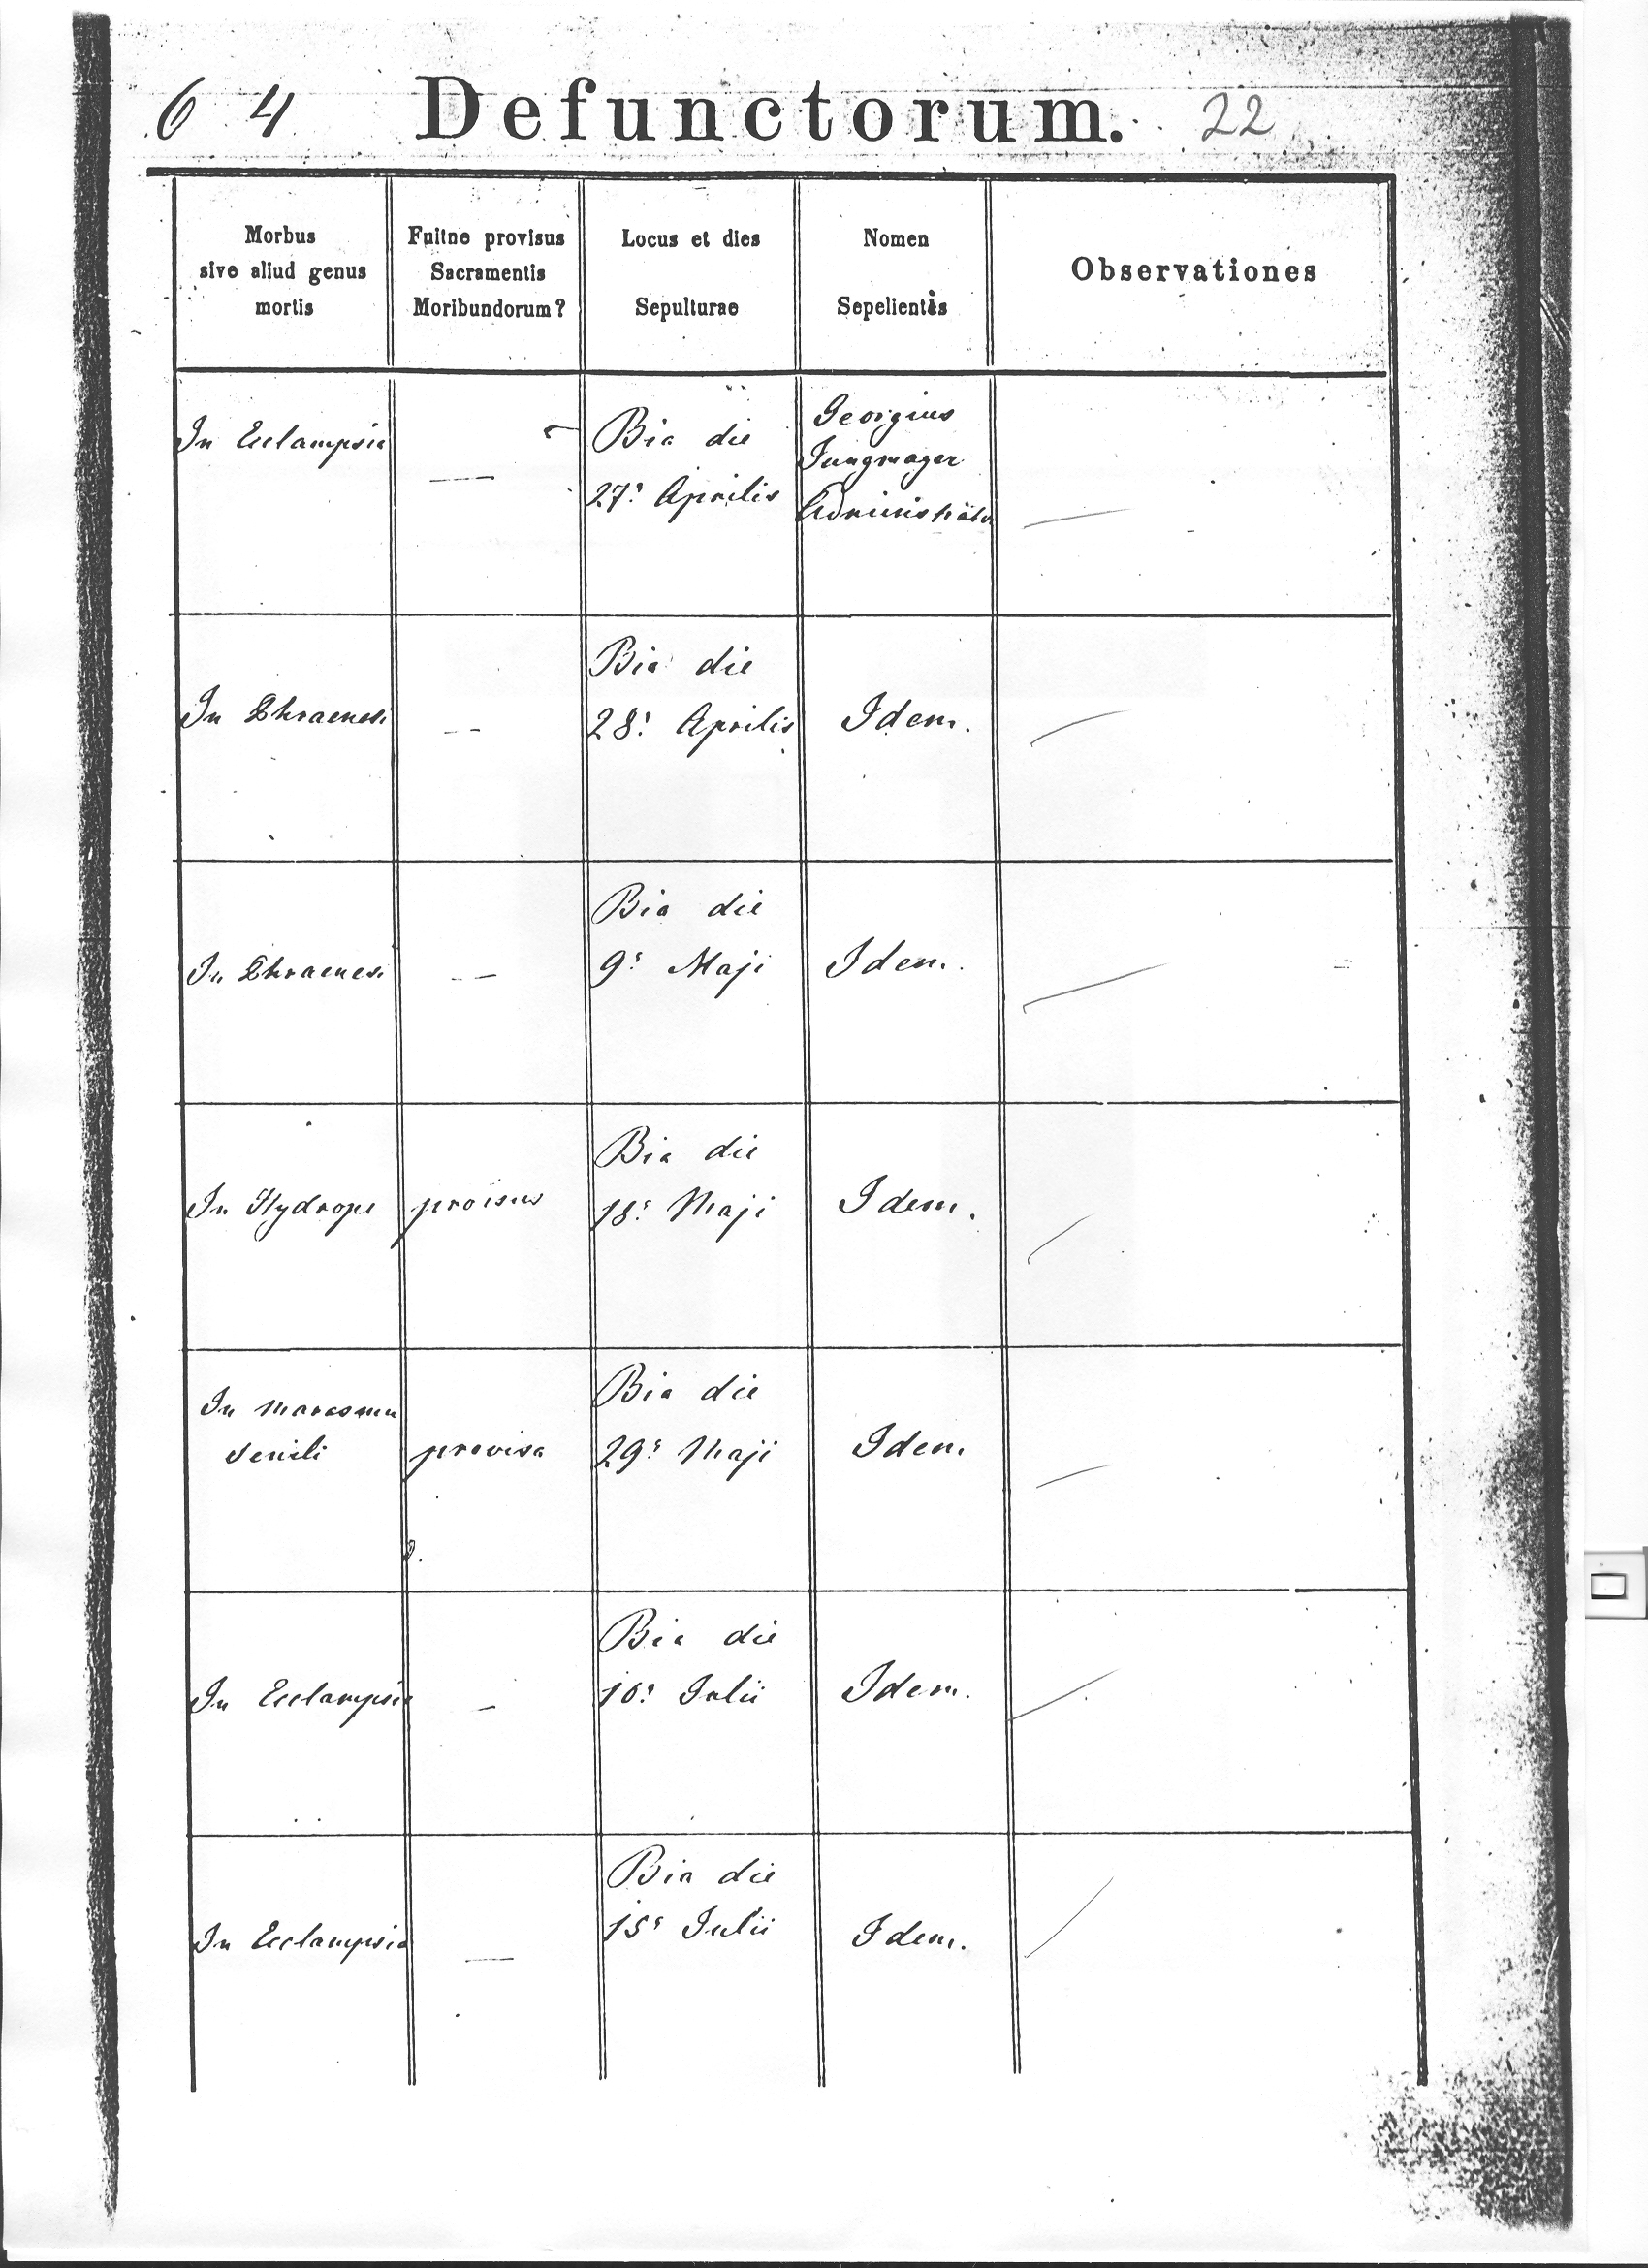 6 4 Defunctorum. 22
Morbus
sive aliud genus
mortis
Fuitne provisus
Sacramentis
Moribundorum?
Locus et dies
Sepulturae
Nomen
Sepelientis
Observationes
In Ecclampsia
—
Bia die
27ª Aprilis
Georgius
Jungmayer
Administrator
In
—
Bia die
28ª Aprilis
Idem.
In
—
Bia die
9ª Maji
Idem.
In Hydrope
proisus
Bia die
18ª Maji
Idem.
In Marasmu
senili
provisa
Bia die
29ª Maji
Idem
In Ecclampsia
—
Bia die
10ª Julii
Idem.
In Ecclampsia
—
Bia die
15ª Julii
Idem.